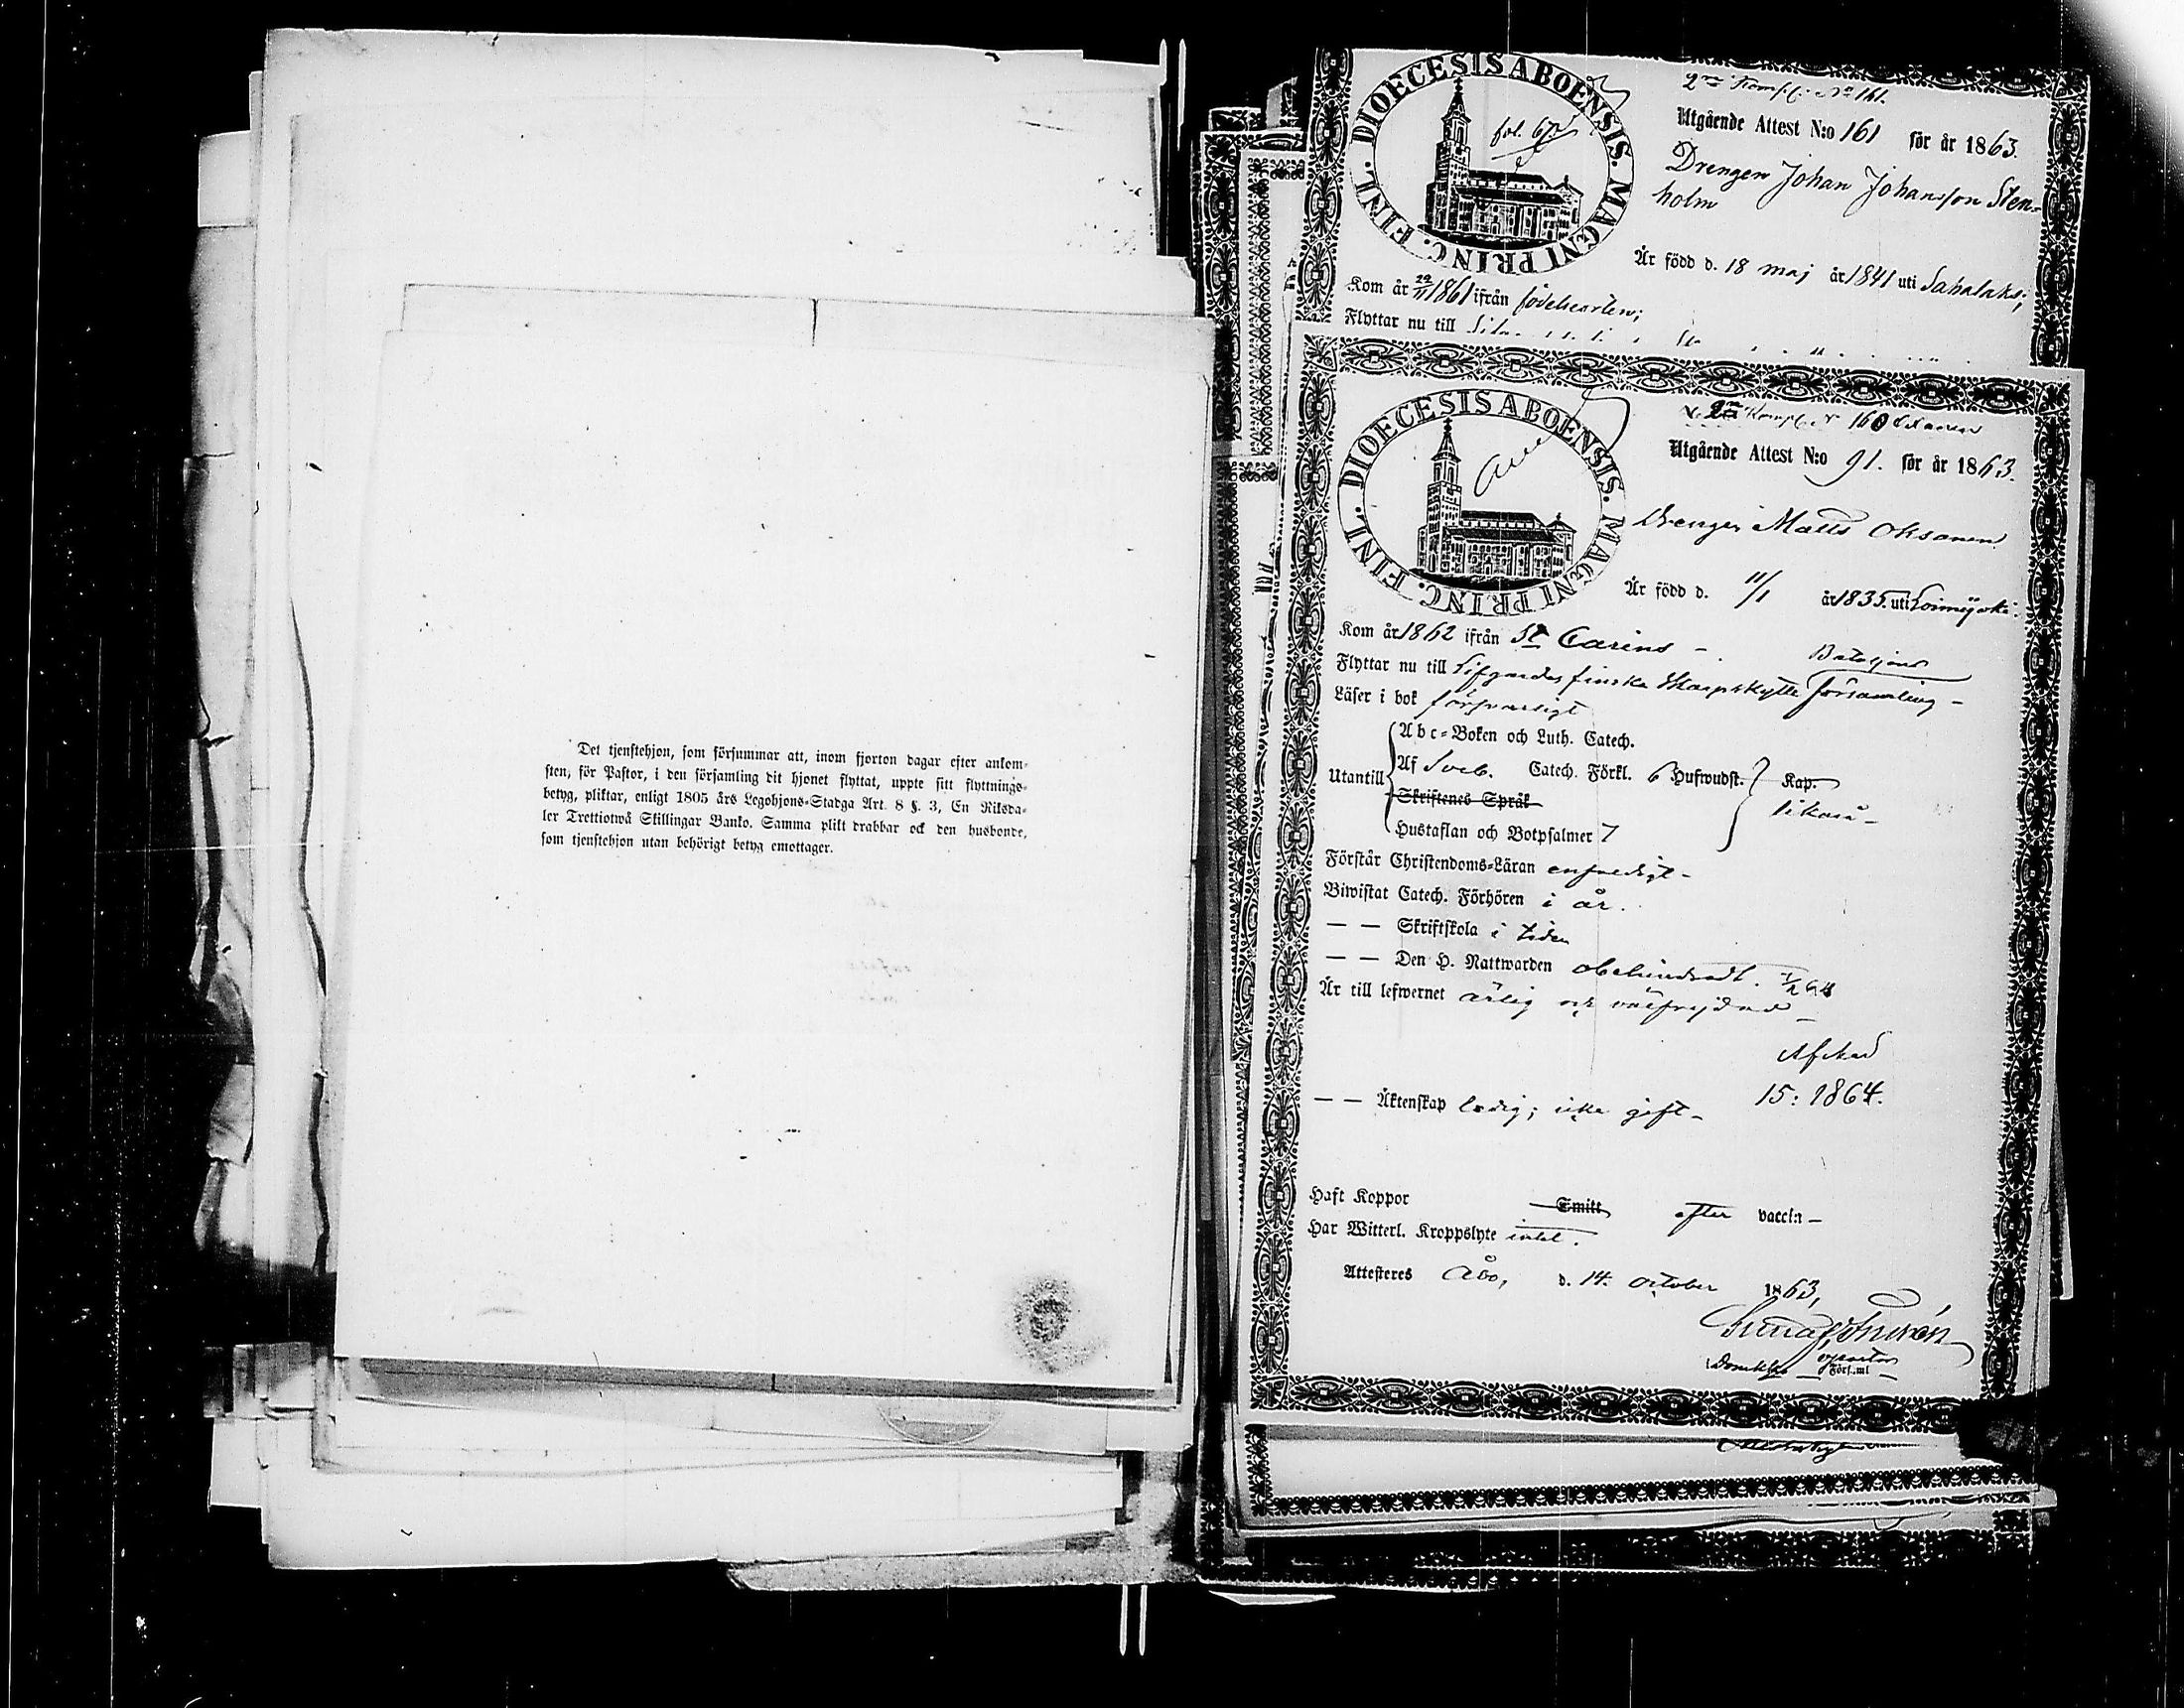 Det tjenstehjon, som försummar att, inom fjorton dagar efter ankom-
sten, för Pastor, i den församling dit hjonet flyttat, uppte sitt flyttnings-
betyg, pliktar, enligt 1805 års Legohjons-Stadga Art. 8 §. 3, En Riksda-
ler Trettiotwå Skillingar Banko. Samma plikt drabbar ock den husbonde,
som tjenstehjon utan behörigt betyg emottager.
DIOECESIS ABOENSIS. MAGNI PRINC. FINL.
fol. 67
2ra Komp. No 161.
Utgående Attest N:o 161 för år 1863.
Drengen Johan Johansson Sten-
holm
Är född d. 18 maj år 1841 uti Sahalaks;
Kom år 1861 ifrån födelseorten;
Flyttar nu till
DIOECESIS ABOENSIS. MAGNI PRINC. FINL.
2ra Komp. N 160
Utgående Attest N:o 91. för år 1863.
Drengen Matts Oksanen
Är född d. 11/1 år 1835. uti Loimijoki.
Kom år 1862 ifrån St Carins -
Bataljons
Flyttar nu till Lifgardes finska Skarpskytte församling -
Läser i bok försvarligt
Abc-Boken och Luth. Catech.
Utantill Af Sveb. Catech. Förkl. 6 Hufwudst. Kap.
Skriftenes Språk likaså -
Hustaflan och Botpsalmer 7
Förstår Christendoms-Läran enfaldigt -
Biwistat Catech. Förhören i år.
— — Skriftskola i tiden
— — Den H. Nattwarden obehindradt.
Är till lefwernet ärlig och välfrejdad -
Afsked
15: 1864.
— — Äktenskap ledig; icke gift -
Haft Koppor Smitt efter vaccin -
Har Witterl. Kroppslyte intet.
Attesteres Åbo, d. 14. october 1863,
Förs.ml